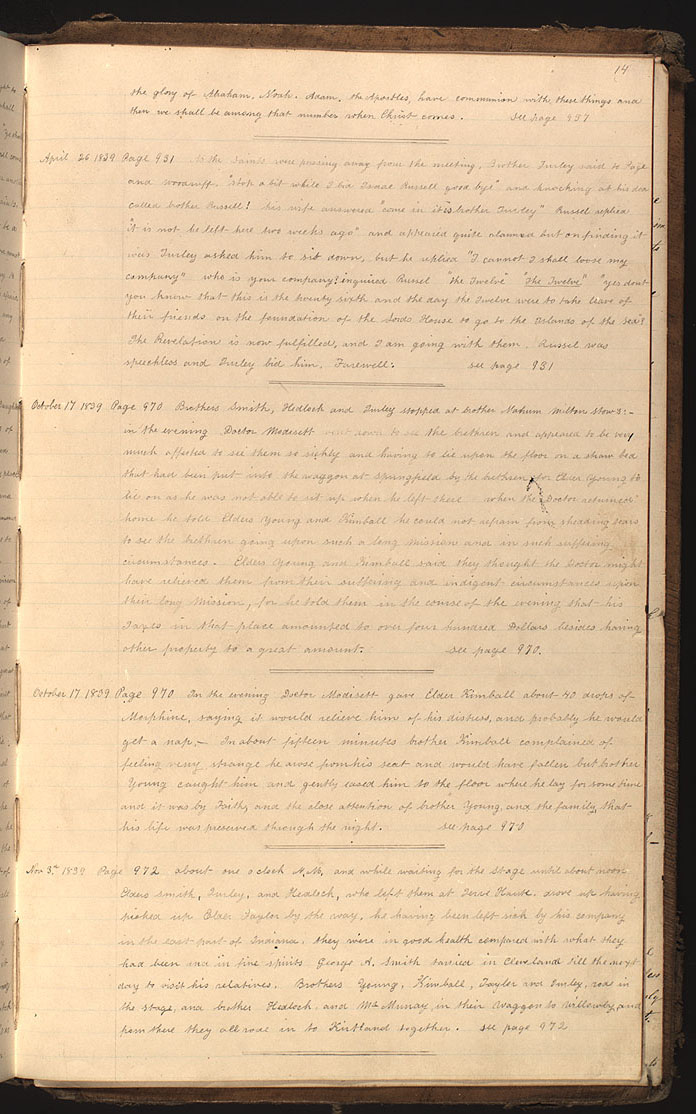 14
the glory of Abraham, Noah. Adam, the Apostles, have communion with these things and
then we shall be among that number when Christ comes. See page 937
April 26 1839 Page 931 As the Saints were passing away from the meeting, Brother Turley said to Page
and Woodruff, "stop a bit while I bid Isaac Russell good bye" and knocking at his door
called brother Russell! his wife answered "come in it is brother Turley" Russell replied
"it is not he left here two weeks ago" and appeared quite alarmed but on finding it
was Turley asked him to sit down, but he replied "I cannot I shall loose my
company" who is your company? enquired Russel "The Twelve" "The Twelve" "yes dont
you know that this is the twenty sixth and the day the Twelve were to take leave of
their friends on the foundation of the Lords House to go to the Islands of the sea?
The Revelation is now fulfilled, and I am going with them. Russel was
speechless and Turley bid him. Farewell: see page 931
October 17 1839 Page 970 Brothers Smith, Hedlock and Turley stopped at brother Nahum Milton Stow's:-
in the evening Doctor Modisett went down to see the brethren and appeared to be very
much affected to see them so sickly and having to lie upon the floor on a straw bed
that had been put into the waggon at Springfield by the brethren for Elder Young to
lie on as he was not able to sit up when he left there when the Doctor returned
home he told Elders Young and Kimball he could not refrain from shedding tears
to see the brethren going upon such a long mission and in such suffering
circumstances. Elders Young and Kimball said they thought the Doctor might
have relieved them from their suffering and indigent circumstances upon
their long mission, for he told them in the course of the evening that his
Taxes in that place amounted to over four hundred Dollars besides having
other property to a great amount. see page 970.
October 17 1839. Page 970 In the evening Doctor Modisett gave Elder Kimball about 40 drops of
Morphine, saying it would relieve him of his distress, and probably he would
get a nap,— In about fifteen minutes brother Kimball complained of
feeling very strange he arose from his seat and would have fallen but brother
Young caught him and gently eased him to the floor where he lay for some time
and it was by Faith, and the close attention of brother Young, and the family, that
his life was preserved through the night. see page 970
Nov 3rd 1839 Page 972 about one o'clock and while waiting for the stage until about noon
Elders Smith, Turley, and Hedlock, who left them at Terre Haute. drove up having
picked up Elder Taylor by the way, he having been left sick by his company
in the east part of Indiana. they were in good health compared with what they
had been and in fine spirits. George A. Smith tarried in Cleveland till the next
day to visit his relatives. Brothers Young, Kimball, Taylor and Turley, rode in
the stage, and brother Hedlock and Mr. Murray, in their Waggon to Willowby, and
from there they all rode in to Kirtland together. see page 972